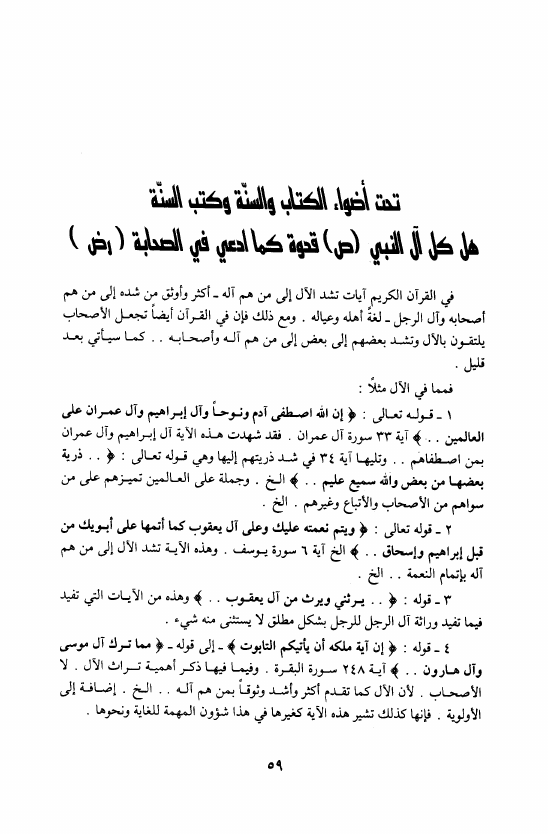 تحت أضواء الكتاب والسنّة وكتب السنّة
هل كل آل النبي (ص) قدوة كما ادعي في الصحابة (رض)
في القرآن الكريم آيات تشد الآل إلى من هم آله ـ أكثر وأوثق من شده إلى من هم
أصحابه وآل الرجل ـ لغةً أهله وعياله . ومع ذلك فإن في القرآن أيضاً تجعل الأصحاب
يلتقون بالآل وتشد بعضهم إلى بعض إلى من هم آله وأصحابه . . كما سيأتي بعد
قليل .
فمما في الآل مثلاً :
١ ـ قوله تعالى : ﴿ إن الله اصطفى آدم ونوحاً وآل إبراهيم وآل عمران على
العالمين . . ﴾ آية ٣٣ سورة آل عمران . فقد شهدت هذه الآية آل إبراهيم وآل عمران
بمن اصطفاهم . . وتليها آية ٣٤ في شد ذريتهم إليها وهي قوله تعالى : ﴿ . . ذرية
بعضها من بعض والله سميع عليم . . ﴾ الخ . وجملة على العالمين تميزهم على من
سواهم من الأصحاب والأتباع وغيرهم . الخ .
٢ ـ قوله تعالى : ﴿ ويتم نعمته عليك وعلى آل يعقوب كما أتمها على أبويك من
قبل إبراهيم وإسحاق . . ﴾ الخ آية ٦ سورة يوسف . وهذه الآية تشد الآل إلى من هم
آله بإتمام النعمة . . الخ .
٣ ـ قوله : ﴿ . . يرثني ويرث من آل يعقوب . . ﴾ وهذه من الآيات التي تفيد
فيما تفيد وراثة آل الرجل للرجل بشكل مطلق لا يستثنى منه شيء .
٤ ـ قوله : ﴿ إن آية ملكه أن يأتيكم التابوت ﴾ ـ إلى قوله ـ ﴿ مما ترك آل موسى
وآل هارون . . ﴾ آية ٢٤٨ سورة البقرة . وفيما فيها ذكر أهمية تراث الآل . لا
الأصحاب . لأن الآل كما تقدم أكثر وأشد وثوقاً بمن هم آله . . الخ . إضافة إلى
الأولوية . فإنها كذلك تشير هذه الآية كغيرها في هذا شؤون المهمة للغاية ونحوها .
٥٩